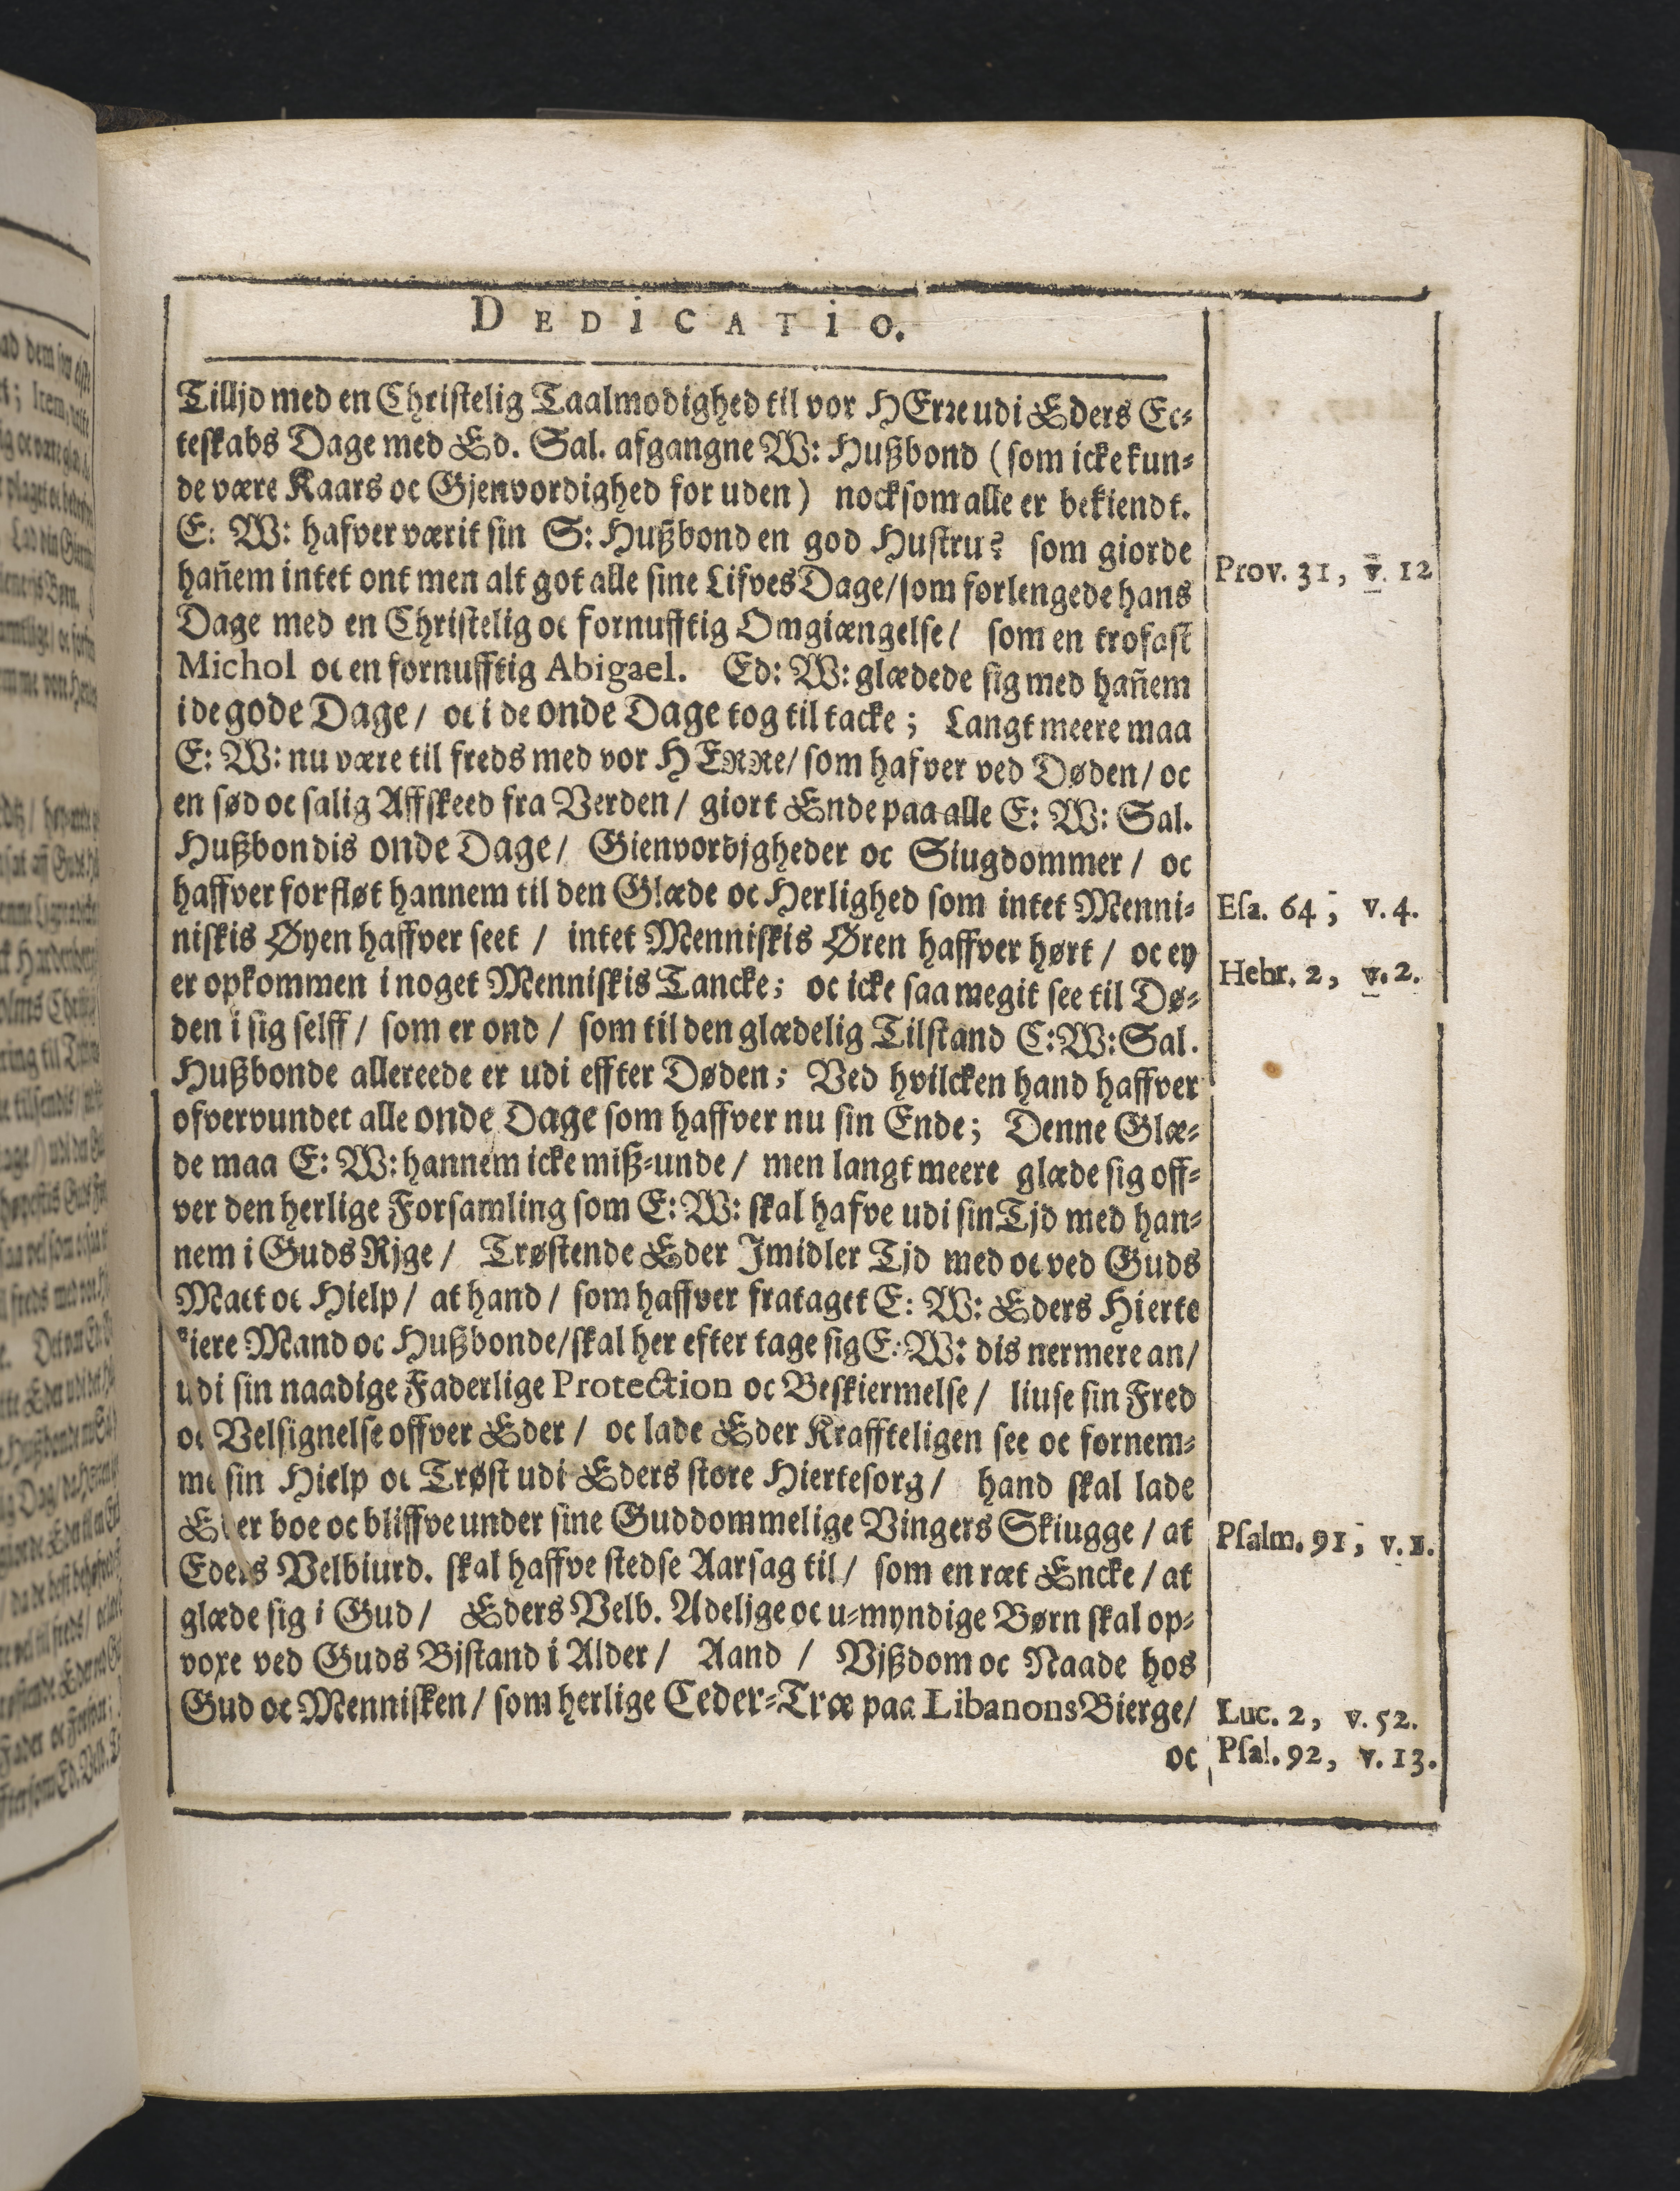 DEDiCATiO.
Tilljd med en Christelig Taalmodighed til vor HErre udi Eders Ec-
teskabs Dage med Ed. Sal. afgangne W: Hußbond (som icke kun-
de være Kaars oc Gjenvordighed for uden) nocksom alle er bekiendt.
E: W: hafver værit sin S: Hußbond en god Hustru? som giorde
hañem intet ont men alt got alle sine Lifves Dage/ som forlengede hans
Prov. 31, v. 12
Dage med en Christelig oc fornufftig Omgiængelse/ som en trofast
Michol oc en fornufftig Abigael. Ed: W: glædede sig med hañem
i de gode Dage/ oc i de onde Dage tog til tacke; Langt meere maa
E: W: nu være til freds med vor HERRe/ som hafver ved Døden/ oc
en sød oc salig Affskeed fra Verden/ giort Ende paa alle E: W: Sal.
Hußbondis onde Dage/ Gienvordjgheder oc Siugdommer/ oc
haffver forfløt hannem til den Glæde oc Herlighed som intet Menni-
Esa. 64, v. 4.
niskis Øyen haffver seet / intet Menniskis Øren haffver hørt / oc ey
Hebr. 2, v. 2.
er opkommen i noget Menniskis Tancke; oc icke saa megit see til Dø-
den i sig selff / som er ond / som til den glædelig Tilstand E: W: Sal.
Hußbonde allereede er udi effter Døden; Ved hvilcken hand haffver
ofvervundet alle onde Dage som haffver nu sin Ende; Denne Glæ-
de maa E: W: hannem icke miß-unde / men langt meere glæde sig off-
ver den herlige Forsamling som E: W: skal hafve udi sin Tjd med han-
nem i Guds Rjge / Trøstende Eder Jmidler Tjd med oc ved Guds
Mact oc Hielp / at hand / som haffver frataget E: W: Eders Hierte
kiere Mand oc Hußbonde/ skal her efter tage sig E: W: dis nermere an/
udi sin naadige Faderlige Protection oc Beskiermelse / liuse sin Fred
oc Velsignelse offver Eder / oc lade Eder Kraffteligen see oc fornem-
me sin Hielp oc Trøst udi Eders store Hiertesorg / hand skal lade
Eder boe oc bliffve under sine Guddommelige Vingers Skiugge / at
Psalm. 91, v. 1.
Eders Velbiurd. skal haffve stedse Aarsag til / som en ræt Encke / at
glæde sig i Gud / Eders Velb. Adelige oc u-myndige Børn skal op-
voxe ved Guds Bjstand i Alder / Aand / Vjßdom oc Naade hos
Gud oc Mennisken / som herlige Ceder-Træ paa Libanons Bierge/
Luc. 2, v. 52.
oc
Psal. 92, v. 13.